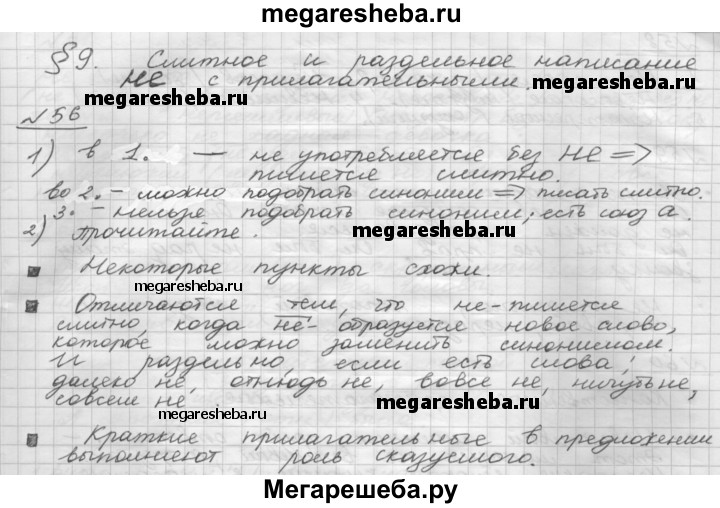 megaresheba.ru
§ 9. Слитное и раздельное написание
не с прилагательными.
megaresheba.ru
megaresheba.ru
№56
1) в 1. — не употребляется без НЕ =>
пишется слитно.
во 2. - можно подобрать синоним => писать слитно.
3. - нельзя подобрать синоним; есть союз а.
2) Прочитайте.
megaresheba.ru
Некоторые пункты схожи.
megaresheba.ru
Отличаются тем, что не - пишется
слитно, когда не - образуется новое слово,
которое можно заменить синонимом.
И раздельно, если есть слова:
далеко не, отнюдь не, вовсе не, ничуть не,
совсем не.
megaresheba.ru
megaresheba.ru
Краткие прилагательные в предложении
выполняют роль сказуемого.
Мегарешеба.ру